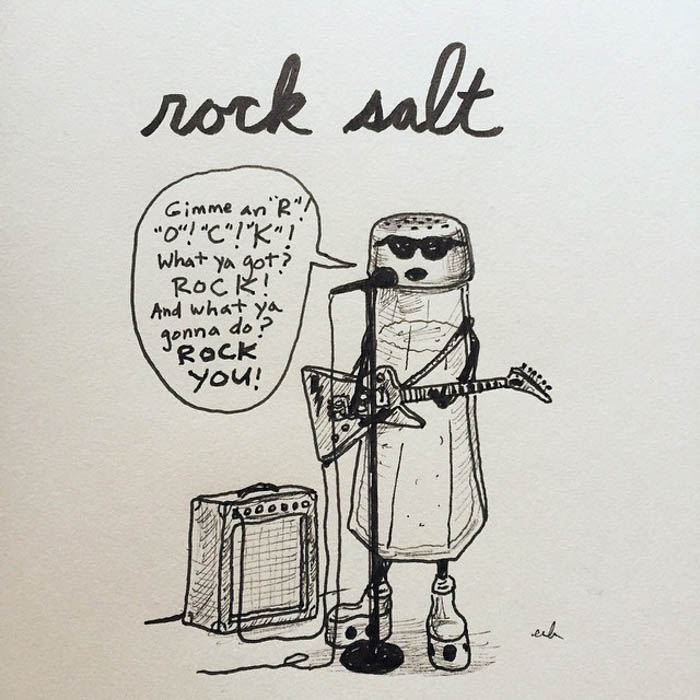 rock salt
Gimme an "R"!
"O"! "C"! "K"!
What ya got?
ROCK!
And what ya
gonna do?
ROCK
YOU!